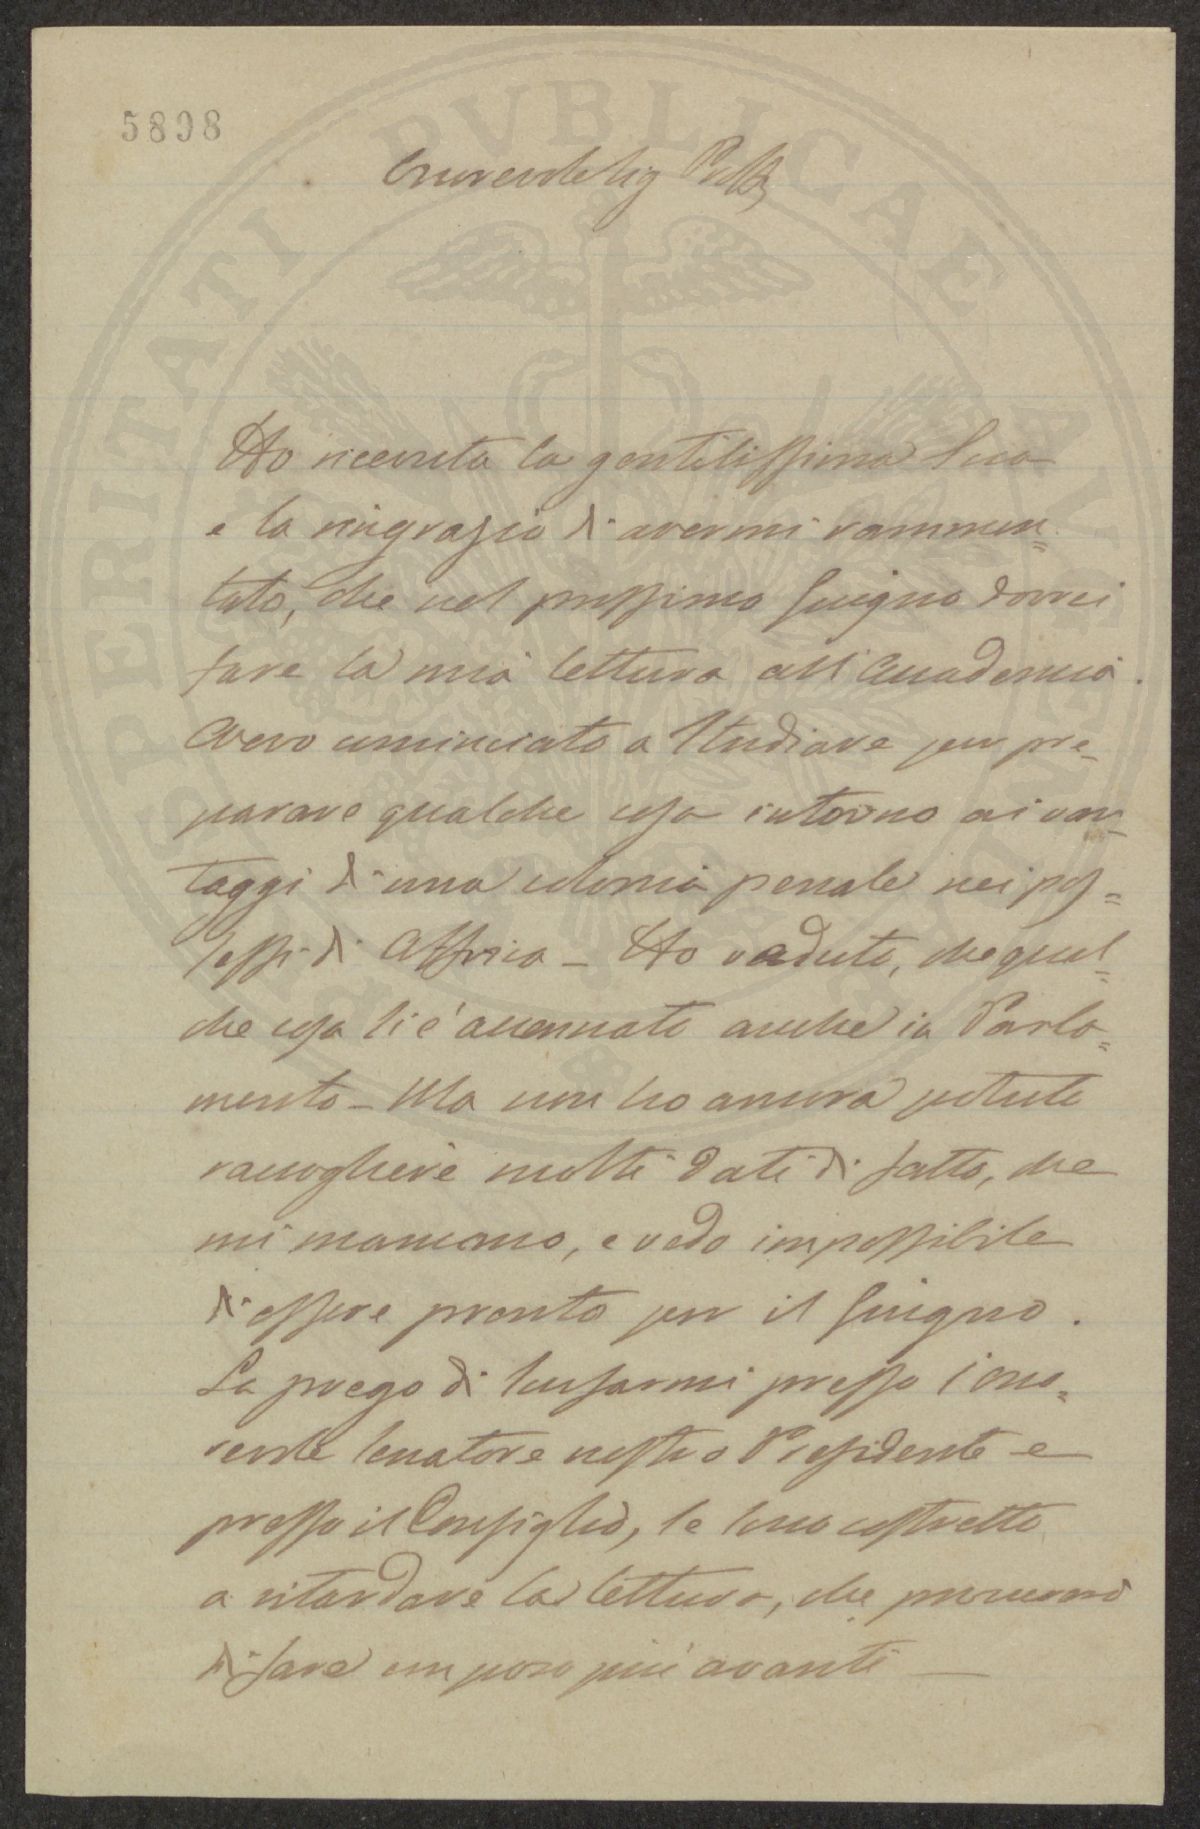 5898
Onorevole Sig Proff
Ho ricevuta la gentilissima Sua
e la ringrazio di avermi rammen=
tato, che nel prossimo Giugno dovrei
fare la mia lettura all'Accademia.
Avevo cominciato a studiare per pre=
parare qualche cosa intorno ai van=
taggi di una colonia penale nei pos=
sessi di Affrica – Ho veduto, che qual=
che cosa si è accennato anche in Parla=
mento – Ma non ho ancora potuto
raccogliere molti dati di fatto, che
mi mancano, e vedo impossibile
di essere pronto per il Giugno.
La prego di scusarmi presso l'ono=
revole Senatore nostro Presidente e
presso il Consiglio, se sono costretto
a ritardare la lettura, che procurerò
di fare un poco più avanti —
PROSPERITATI PVBLICAE AVGENDAE